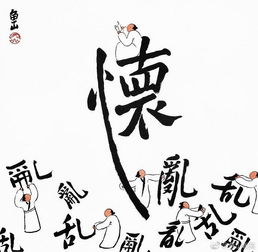 鱼山
懷
亂 亂 亂 乱
乱 乱 亂 乱 亂